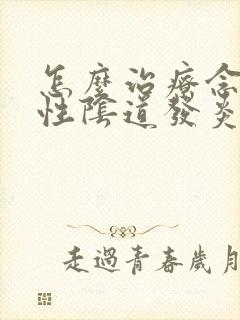 怎麼治療念
性陰道發炎
走過青春歲月